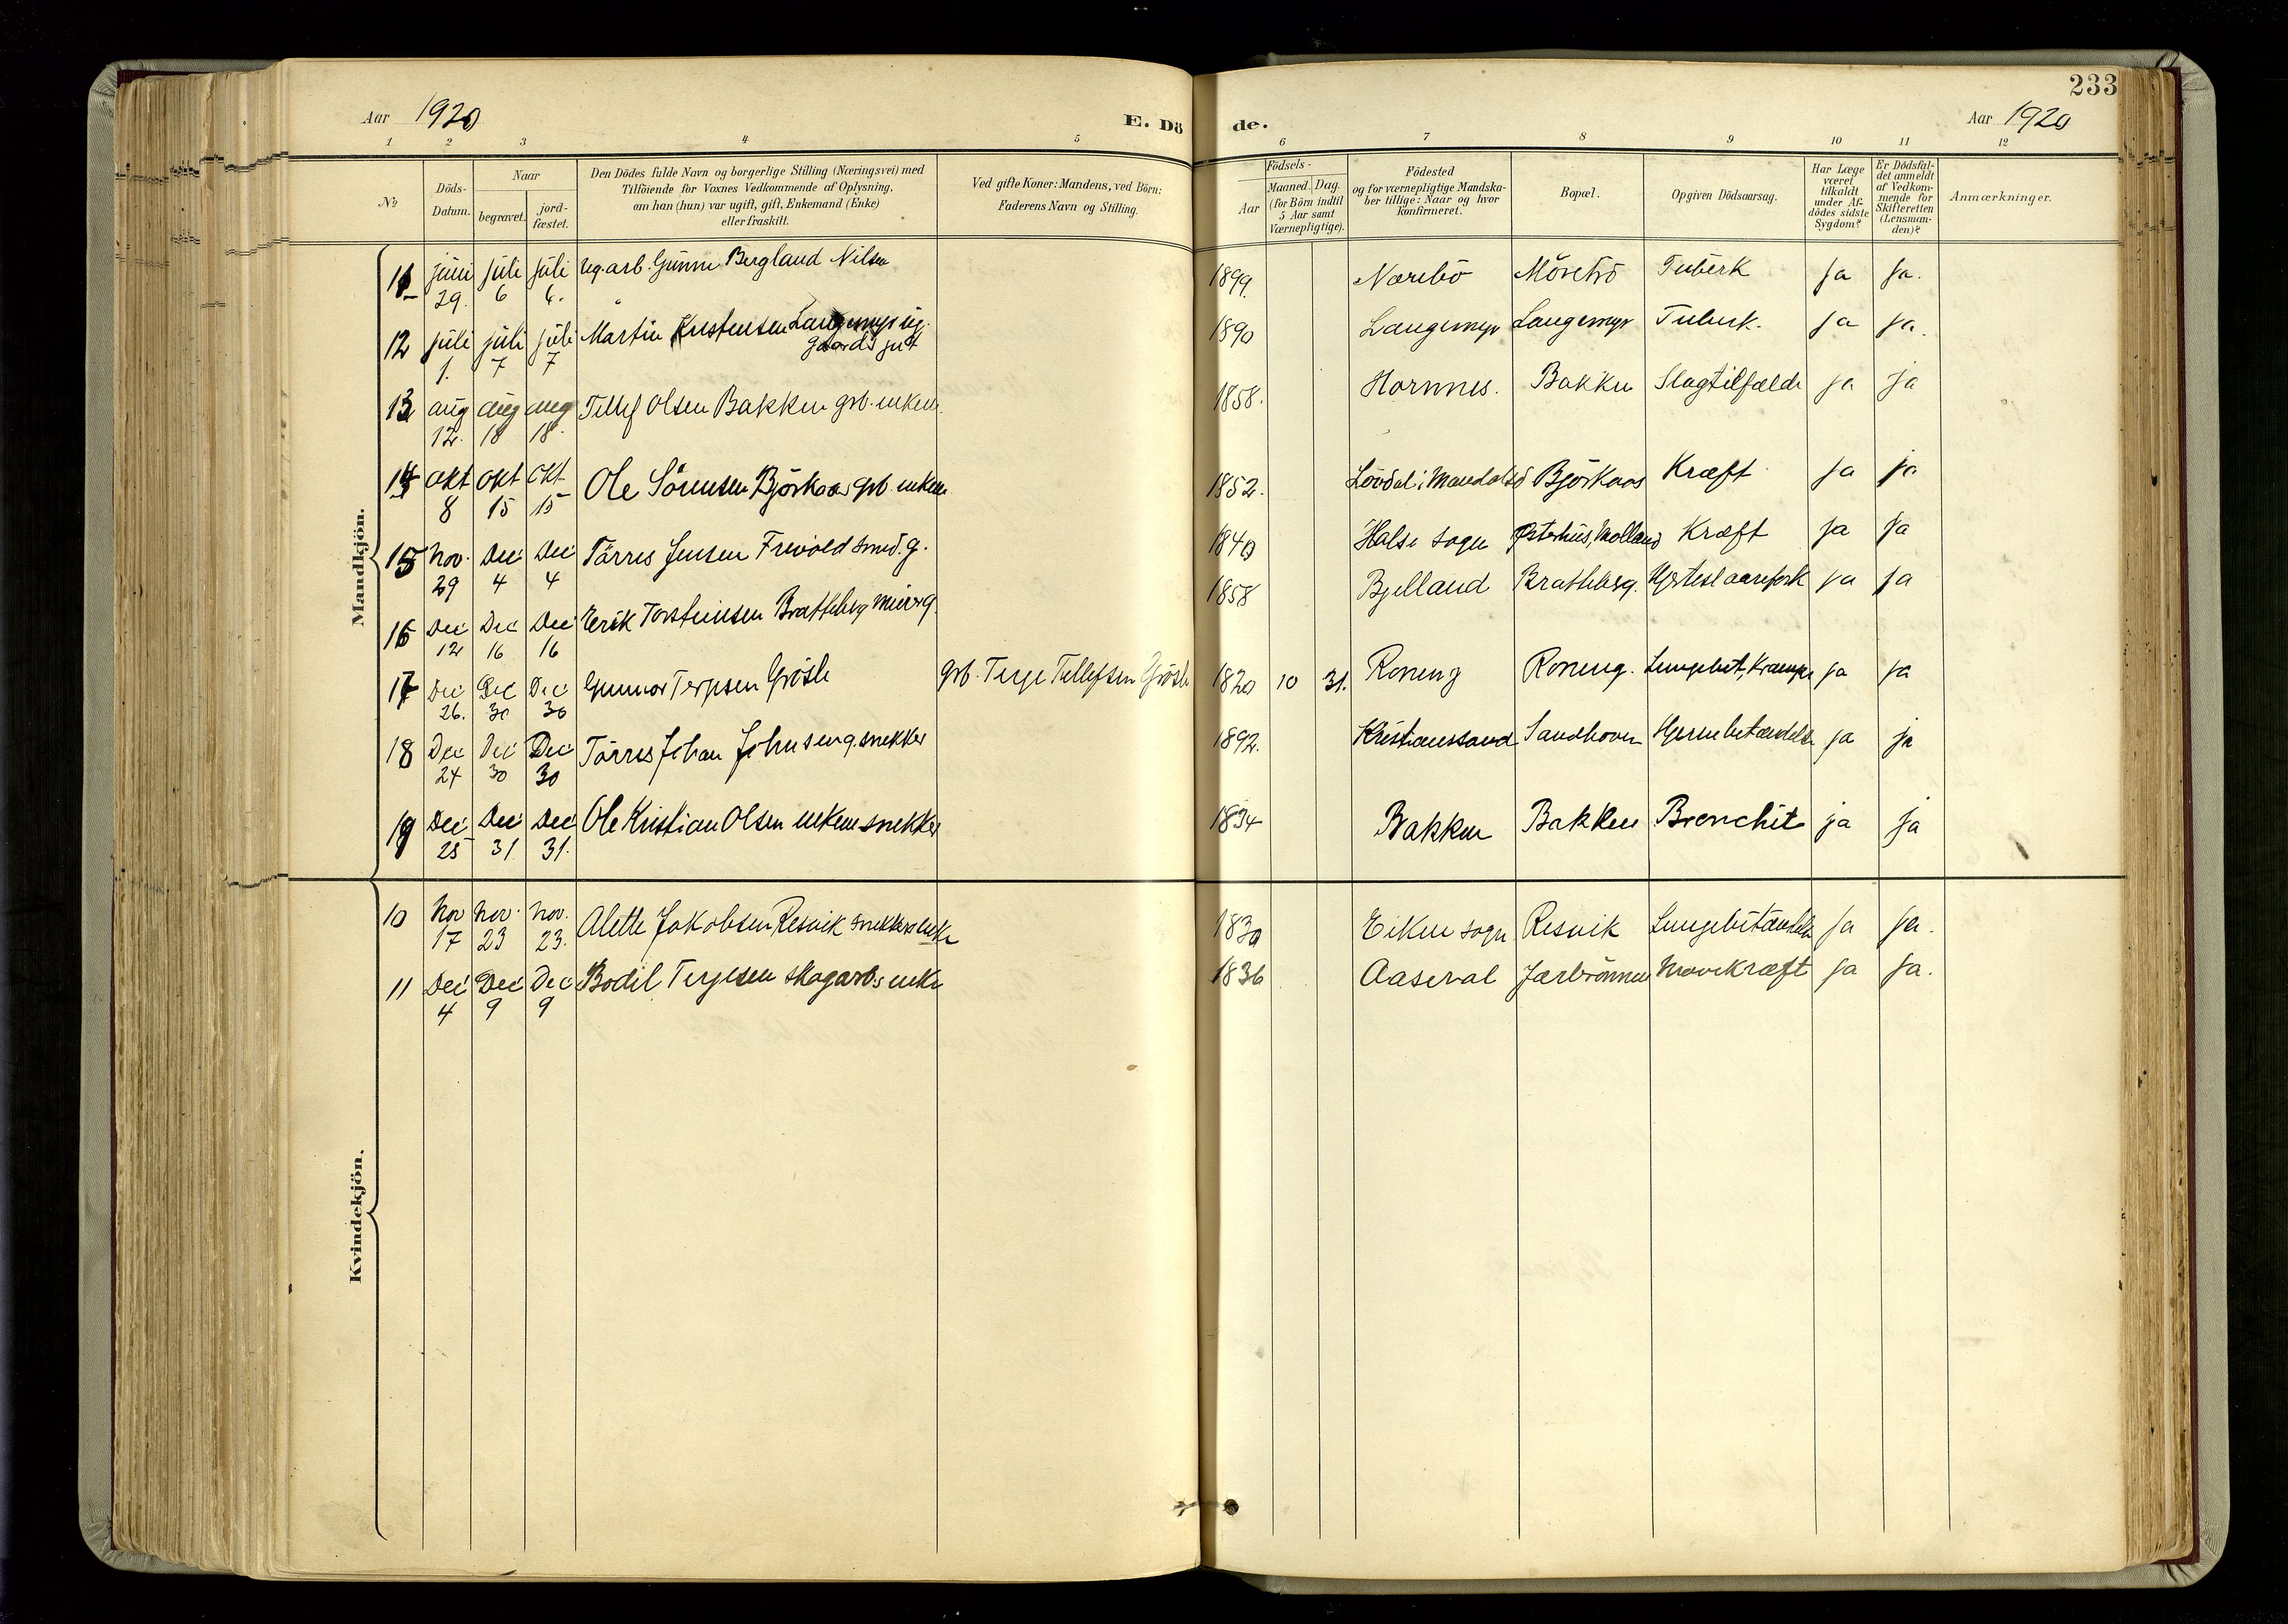 233
Aar 1920 E. Dö de. Aar 1920
1 2 3 4 5 6 7 8 9 10 11 12
No
Döds-Datum.
Naar
begravet.
jordfæstet.
Den Dödes fulde Navn og borgerlige Stilling (Næringsvei) med
Tilföiende for Voxnes Vedkommende af Oplysning,
om han (hun) var ugift, gift, Enkemand (Enke)
eller fraskilt.
Ved gifte Koner: Mandens, ved Börn:
Faderens Navn og Stilling.
Födsels-
Aar
Maaned. Dag.
(for Börn indtil
5 Aar samt
Værnepligtige).
Födested
og for værnepligtige Mandska-
ber tillige: Naar og hvor
konfirmeret.
Bopæl.
Opgiven Dödsaarsag.
Har Læge
været
tilkaldt
under Af-
dödes sidste
Sygdom?
Er Dödsfal-
det anmeldt
af Vedkom-
mende for
Skifteretten
(Lensman-
den)?
Anmærkninger.
Mandkjön.
11 juni 29. juli 6 juli 6. Ug. arb. Gunne Bergland Nilsen 1899. Nærebö Möretrö Tuberk ja ja.
12 juli 1. juli 7 juli 7 Martin Kristensen Langemyr ug. gaardsgut 1890 Langemyr Langemyr Tuberk. ja ja.
13 aug 12. aug 18 aug 18. Tellef Olsen Bakken grb. enkem. 1858. Hornnes. Bakken Slagtilfælde ja ja
14 okt 8 okt 15 okt 15 Ole Sörensen Björkaas grb. enkem 1852. Björkaas Kræft ja ja
15 Nov. 29 Dec 4 Dec 4 Törres Jensen smed. g. 1840 Halse sogn Kræft ja ja
16 Dec 12 Dec 16 Dec 16 Erik Torsteinsen Bratteberg g. 1858 Bjelland Bratteberg. ja ja
17 Dec 26. Dec 30 Dec 30 Gunnar Terjesen Grösle grb. Terje Tellefsen Grösle 1820 10 31. Roneng Roneng. Lungebet, Krampe ja ja
18 Dec 24 Dec 30 Dec 30 Törres Johan Johnsen g. snekker 1892. Kristianssand Hjernebetændelse ja ja
19 Dec 25 Dec 31 Dec 31. Ole Kristian Olsen enkem snekker 1834 Bakken Bakken Bronchit ja ja
Kvindekjön.
10 Nov 17 Nov. 23 Nov. 23. Alette Jakobsen Resvik snekkers enke 1830 Eiken sogn Resvik Lungebetændelse ja ja.
11 Dec 4 Dec 9 Dec 9 Bodil Terjesen skogarbs enke 1836 Aaseral Mavekræft ja ja.